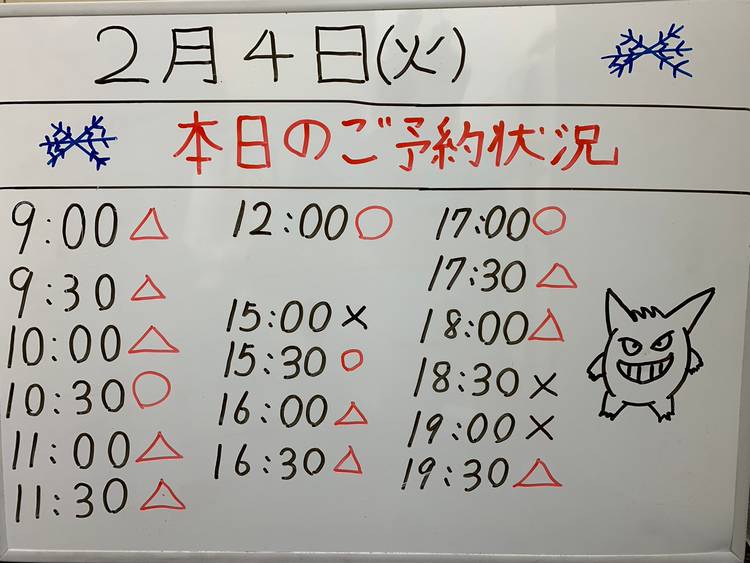 2月4日(火)
本日のご予約状況
9:00 △
9:30 △
10:00 △
10:30 ○
11:00 △
11:30 △
12:00 ○
15:00 ×
15:30 ○
16:00 △
16:30 △
17:00 ○
17:30 △
18:00 △
18:30 ×
19:00 ×
19:30 △